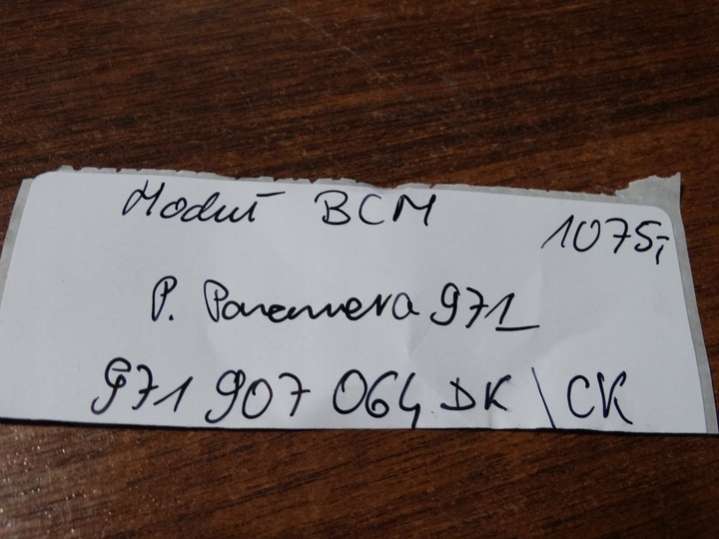 Moduł BCM
1075,-
P. Panamera 971
971 907 064 DK \ CK